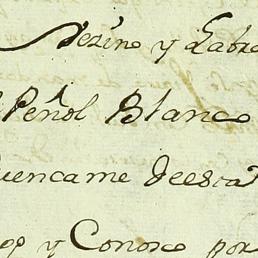 Vezino y Labra
Peñol Blanco
uencame de esta
y Conosco por